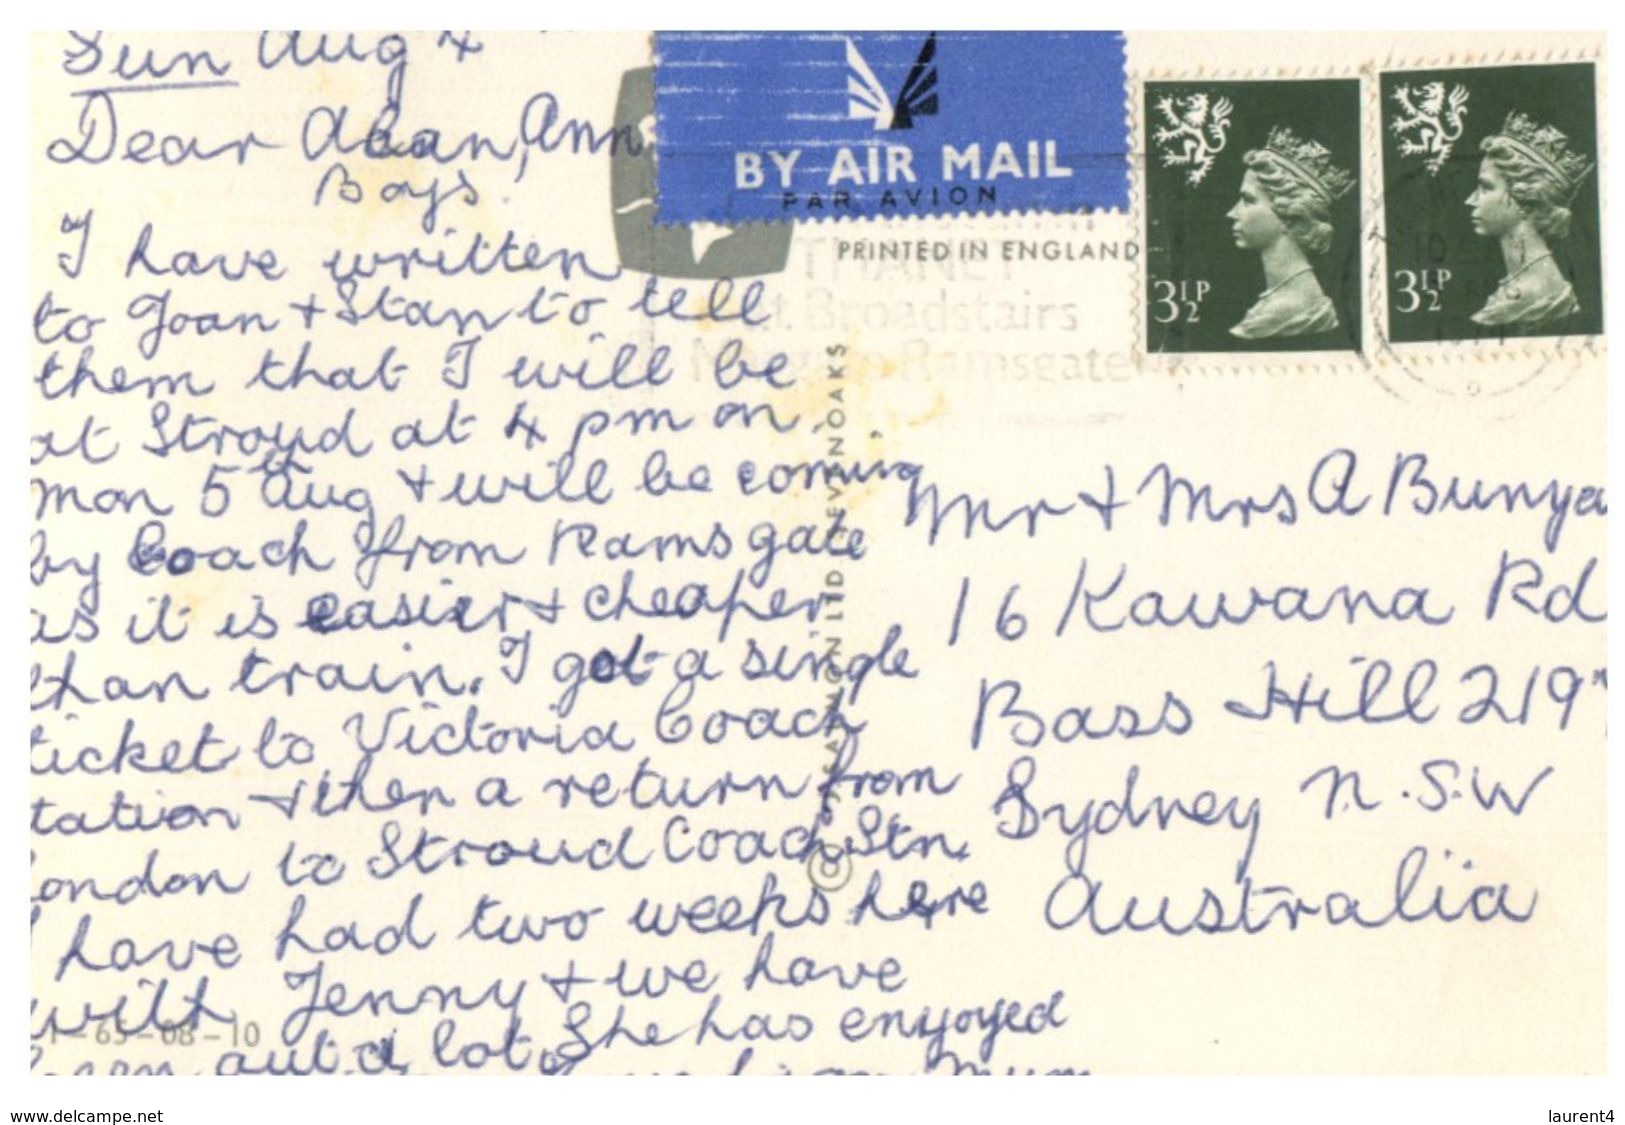 Sun Aug 4
Dear Alan, Ann
Boys.
I have written
to Joan + Stan to tell
them that I will be
at Stroud at 4 pm on
mon 5th Aug + will be coming
by Coach from Ramsgate
as it is easier + cheaper
than train. I got a single
ticket to Victoria Coach
tation + then a return from
ondon to Stroud Coach Stn.
I have had two weeks here
with Jenny + we have
been out a lot. She has enjoyed
Mum
BY AIR MAIL
PAR AVION
PRINTED IN ENGLAND
3½P
3½P
THANET
at Broadstairs
Margate Ramsgate
LTD SEVENOAKS
Mr + Mrs A Bunya
16 Kawana Rd
Bass Hill 219
Sydney N.S.W
Australia
1-65-08-10
www.delcampe.net
laurent4